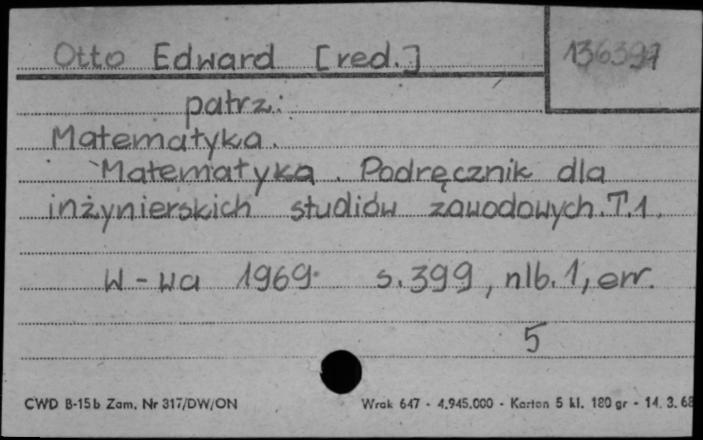 Otto Edward [red.] 136397
patrz:
Matematyka.
Matematyka. Podręcznik dla
inżynierskich studiów zawodowych. T.1.
W-wa 1969. s. 399, nlb. 1, err.
5
CWD B-15b Zam. Nr 317/DW/ON Wrak 647 - 4.945.000 - Karton 5 kl. 180 gr - 14. 3. 68